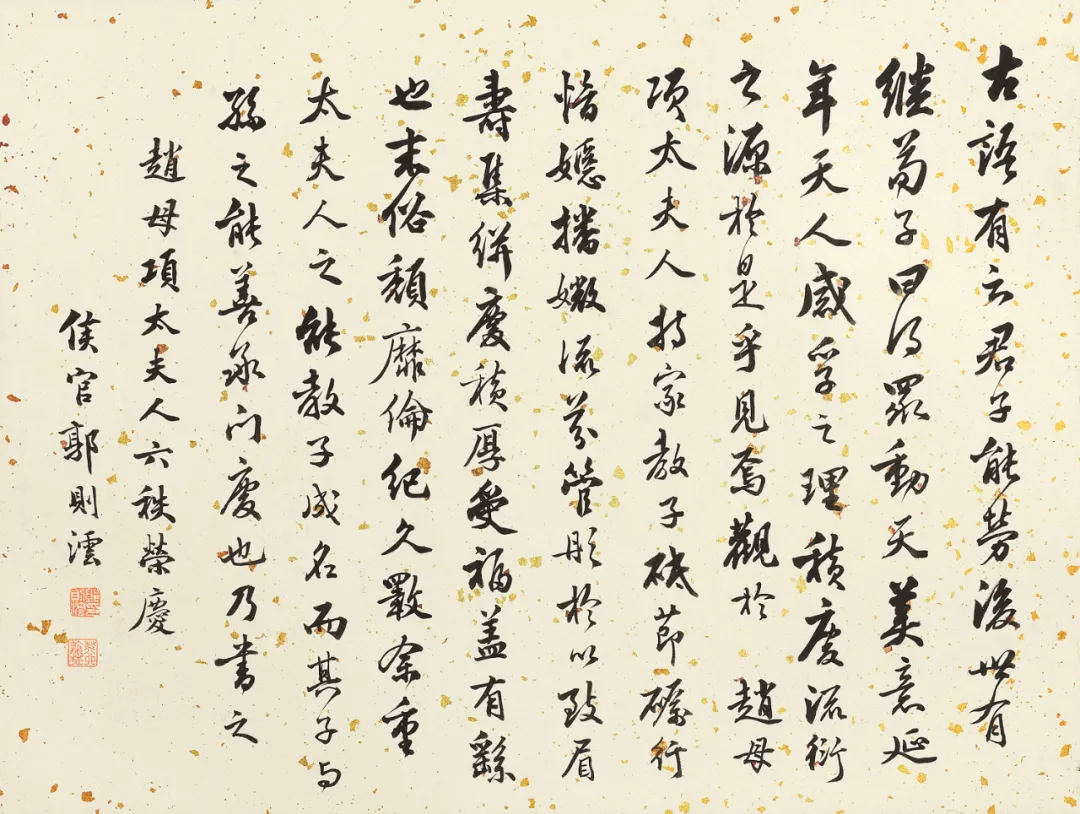 古語有云君子能勞後世有
繼荀子曰得眾動天美意延
年天人感孚之理積慶流衍
之源於是乎見焉觀於 趙母
項太夫人持家教子砥節礪行
愔嫕播徽流芬管彤於以致眉
壽集併慶積厚受福蓋有繇
也末俗頹靡倫紀久斁余重
太夫人之能教子成名而其子与
孫之能善承門慶也乃書之
趙母項太夫人六秩榮慶
侯官郭則澐